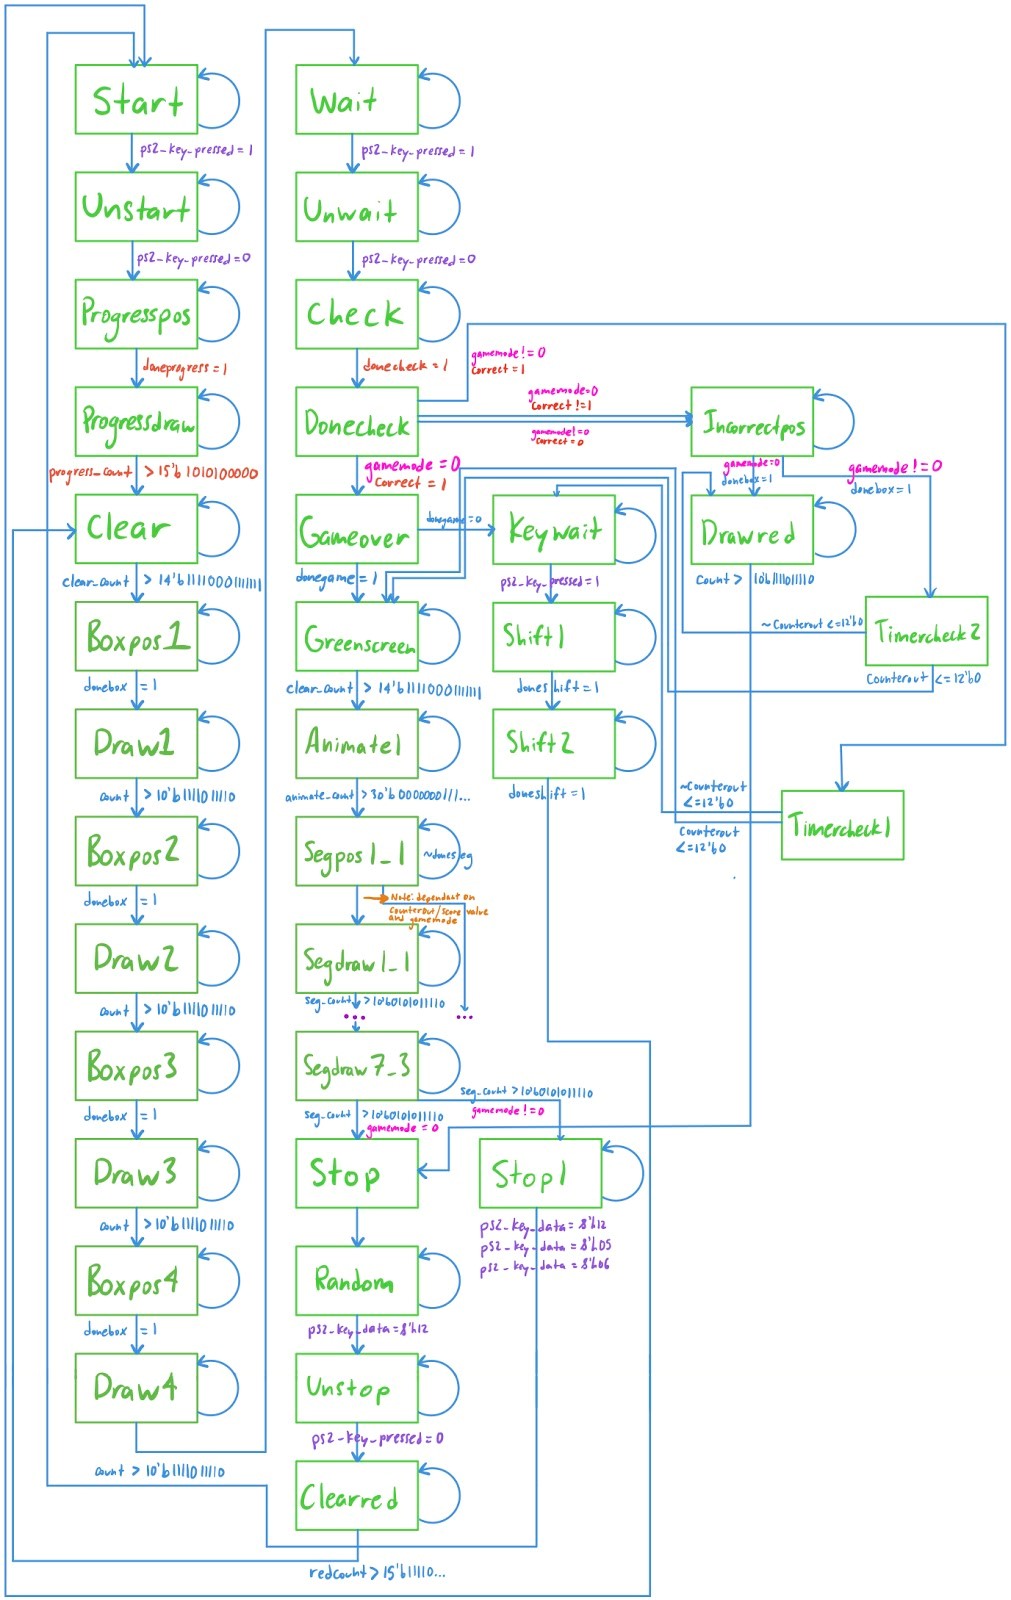 Start
ps2_key_pressed = 1
Unstart
ps2_key_pressed = 0
Progresspos
doneprogress = 1
Progressdraw
progress_count > 15'b1010100000
Clear
clear_count > 14'b11111000111111
Boxpos1
donebox = 1
Draw1
count > 10'b1111011110
Boxpos2
donebox = 1
Draw2
count > 10'b1111011110
Boxpos3
donebox = 1
Draw3
count > 10'b1111011110
Boxpos4
donebox = 1
Draw4
count > 10'b1111011110
Wait
ps2_key_pressed = 1
Unwait
ps2_key_pressed = 0
Check
donecheck = 1
Donecheck
gamemode = 0
Correct = 1
Gameover
donegame = 1
Greenscreen
clear_count > 14'b11110001111111
Animate1
animate_count > 30'b0000000111...
Segpos1_1
~doneseg
Note: dependant on
Counterout/score value
and gamemode
Segdraw1_1
seg_count > 10'b0101011110
...
...
Segdraw7_3
seg_count > 10'b0101011110
gamemode = 0
seg_count > 10'b0101011110
gamemode != 0
Stop
Random
ps2_key_data = 8'h12
Unstop
ps2_key_pressed = 0
Clearred
redcount > 15'b11110...
Stop1
ps2_key_data = 8'h12
ps2_key_data = 8'h05
ps2_key_data = 8'h06
donegame = 0
Keywait
ps2_key_pressed = 1
Shift1
doneshift = 1
Shift2
doneshift = 1
gamemode != 0
Correct = 1
gamemode = 0
Correct != 1
gamemode != 0
Correct = 0
Incorrectpos
gamemode = 0
donebox = 1
gamemode != 0
donebox = 1
Drawred
Count > 10'b1111011110
~Counterout <= 12'b0
Timercheck2
Counterout <= 12'b0
~Counterout
<= 12'b0
Counterout
<= 12'b0
Timercheck1